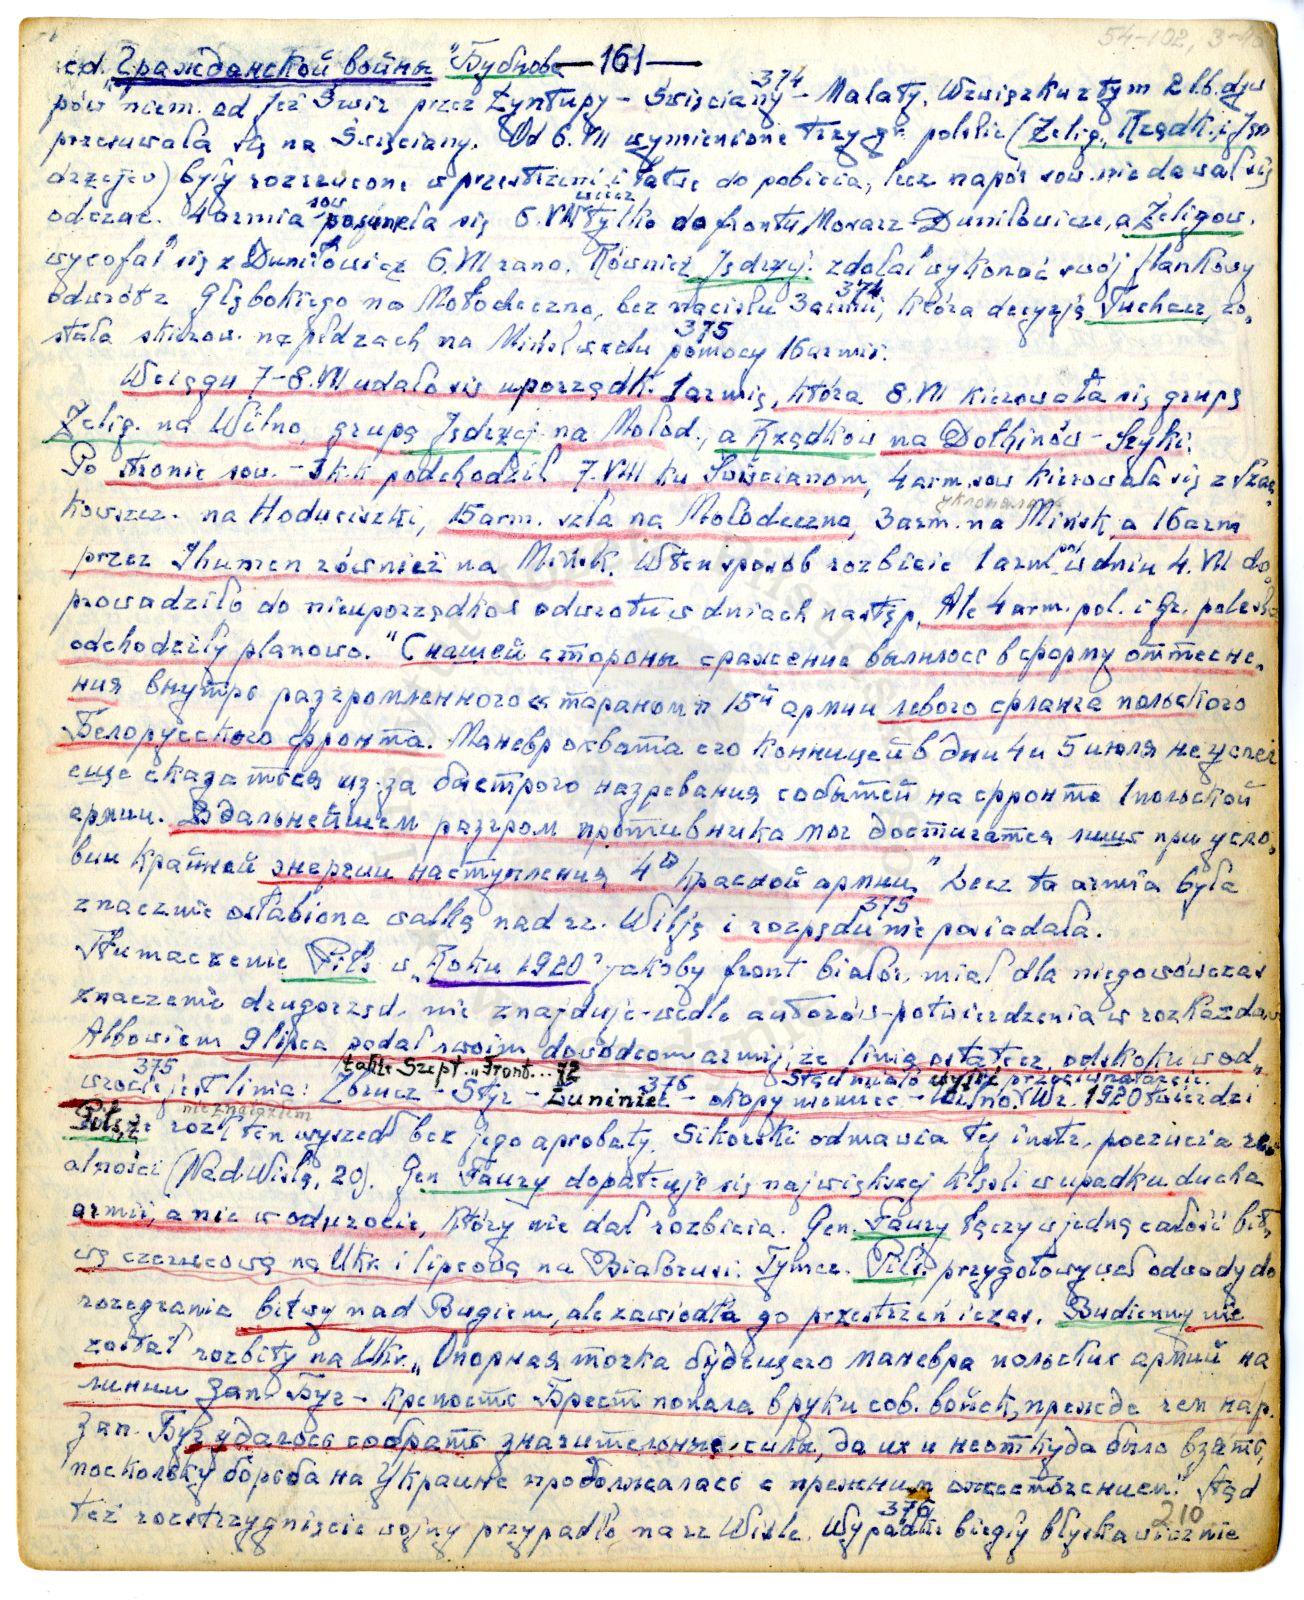 54-102, 3-
cd. Гражданской войны "Бубнова — 161 —
pów" niem. od Jez. Świr przez Żyntupy – Święciany 374 – Malaty. W związku z tym 2 lb. dyw
przesuwała się na Święciany. Od 6.VII wymienione trzy gr. polskie (Żelig., Rządk. i Ję
drzejew) były rozrzucone w przestrzeni i łatwe do pobicia, lecz napór sow. nie dawał się
odczuć. 4 armia sow posunęła się 6.VII wiecz tylko do frontu Mosarz–Duniłowicze, a Żeligow.
wycofał się z Duniłowicz 6.VII rano. Również Jędrzej. zdołał wykonać swój flankowy
odwrót z Głębokiego na Mołodeczno, bez nacisku 3 armii, 374 która decyzją Tuchacz. zo,
stała skierow. na piędzach na Mińsk w celu pomocy 16 armii. 375
W ciągu 7–8.VII udało się uporządk. 1 armię, która 8.VII kierowała się grupą
Żelig. na Wilno, grupą Jędrzej. na Mołod., a Rządków na Dołhinów –
Po stronie sow. – 3 k.k podchodził 7.VII ku Święcianom, 4 arm. sow kierowała się z
kowszcz. na Hoduciszki, 15 arm. szła na Mołodeczno, 3 arm. na Mińsk, a 16 arm
przez Ihumen również na Mińsk. W ten sposób rozbicie 1 arm. pol w dniu 4.VII do,
prowadziło do nieuporządkow odwrotu w dniach następ. Ale 4 arm. pol. i Gr. poleska
odchodziły planowo. "С нашей стороны сражение вылилось в форму оттесне,
ния внутрь разгромленного «тараном» 15й армии левого фланга польского
Белорусского фронта. Маневр охвата его конницей в дни 4 и 5 июля не успел
еще сказаться из-за быстрого назревания событий на фронте 1 польской
армии. В дальнейшем разгром противника мог достигаться лишь при усло,
вии крайней энергии наступления 4й красной армии" Lecz ta armia była
znacznie osłabiona walką nad rz. Wilją i rozpędu nie posiadała. 375
Tłumaczenie Piłs w „Roku 1920" jakoby front białor. miał dla niego wówczas
znaczenie drugorzęd. nie znajduje – wedle autorów – potwierdzenia w rozkazdaw
Albowiem 9 lipca podał swoim dowódcom armij, że linią ostatecz. odskoku w od„
wrocie jest linia: 375 Zbrucz – Styr – Łuniniec – 376 okopy niemiec – Wilno. W r. 1920 twierdzi
także Szept. „Front... 72
Piłs, że rozk ten wyszedł bez jego aprobaty. nie znalazłem Sikorski odmawia tej instr. poczucia re„
alności (Nad Wisłą, 20). Gen Faury dopatruje się największej klęski w upadku ducha
armii, a nie w odwrocie, który nie dał rozbicia. Gen. Faury łączy w jedną całość bit,
wę czerwcową na Ukr. i lipcową na Białorusi. Tymcz. Piłs. przygotowywał odwody do
rozegrania bitwy nad Bugiem, ale zawiodła go przestrzeń i czas. Budienny nie
został rozbity na Ukr. „Опорная точка будущего маневра польских армий на
линии Зап. Буг – крепость Брест попала в руки сов. войск, прежде чем на р.
Зап. Буг удалось собрать значительные силы, да их и неоткуда было взять,
поскольку борьба на Украине продолжалась с прежним ожесточением". Stąd
też rozstrzygnięcie wojny przypadło na rz Wisłę. 376 Wypadki biegły błyskawicznie
210